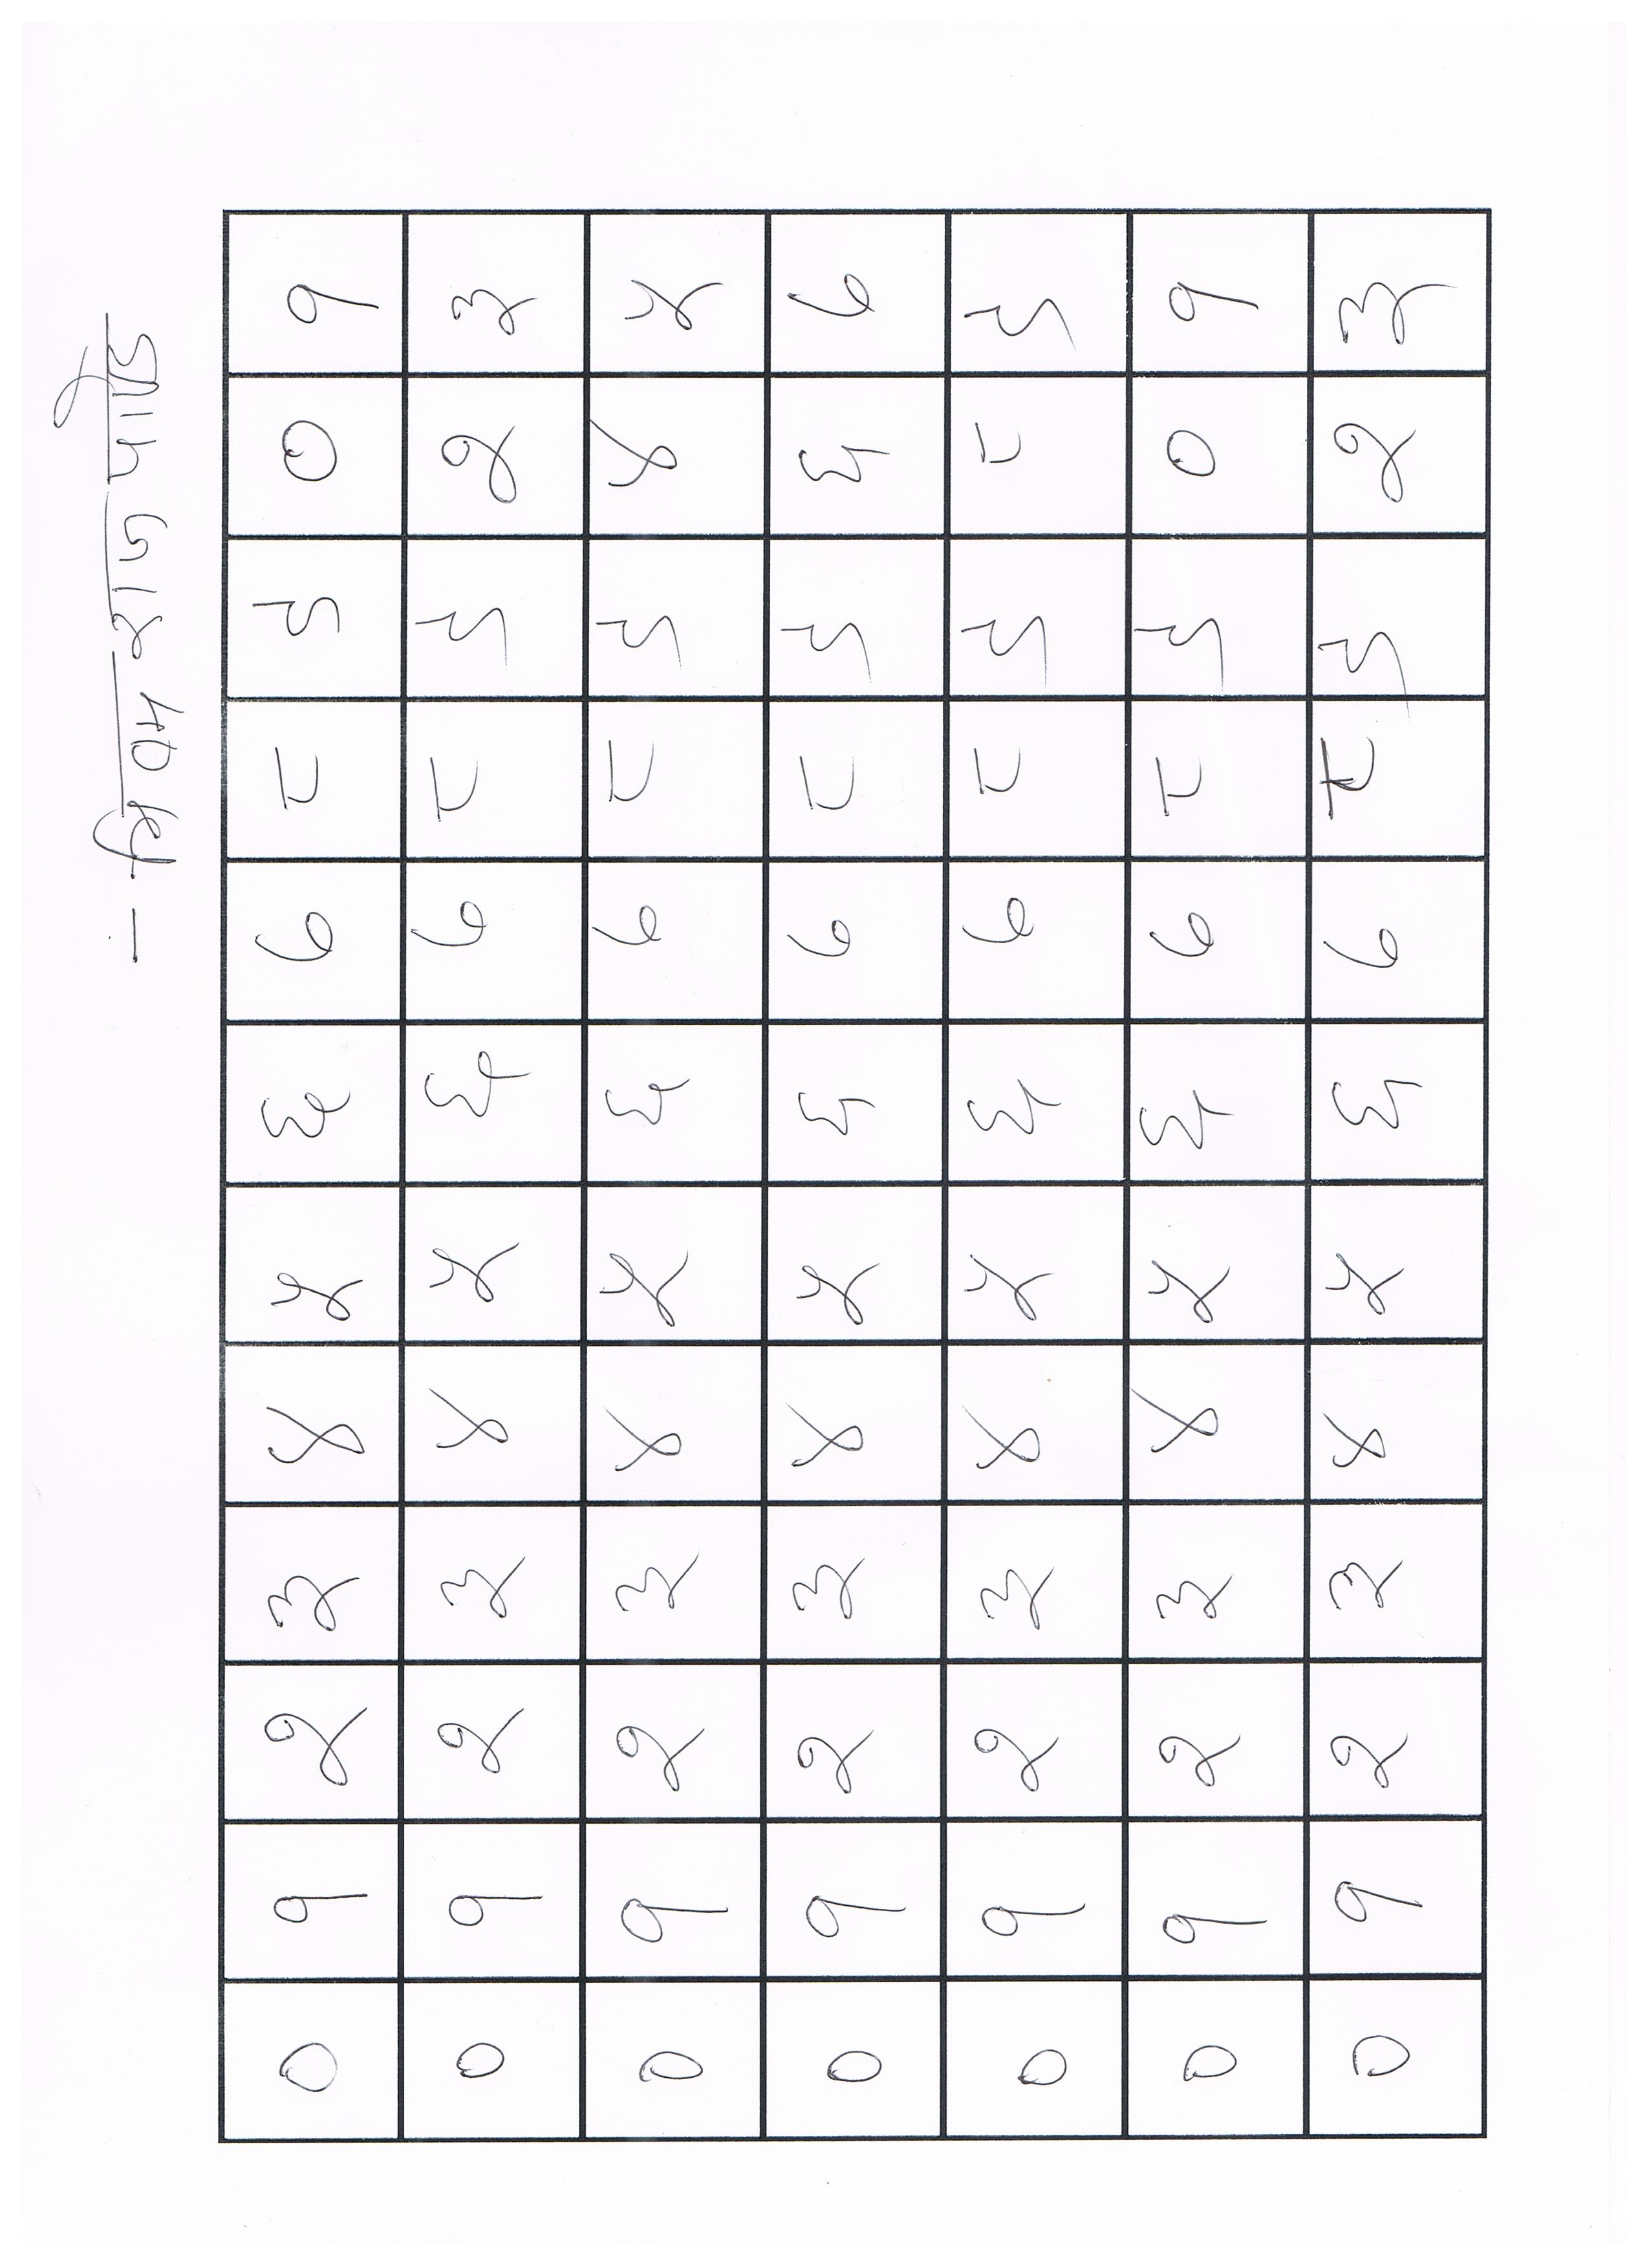 राज
० १ २ ३ ४ ५ ६ ७ ८ ९ ० १
० १ २ ३ ४ ५ ६ ७ ८ ९ २ ३
० १ २ ३ ४ ५ ६ ७ ८ ९ ४ ५
० १ २ ३ ४ ५ ६ ७ ८ ९ ६ ७
० १ २ ३ ४ ५ ६ ७ ८ ९ ८ ९
० १ २ ३ ४ ५ ६ ७ ८ ९ ० १
० १ २ ३ ४ ५ ६ ७ ८ ९ २ ३